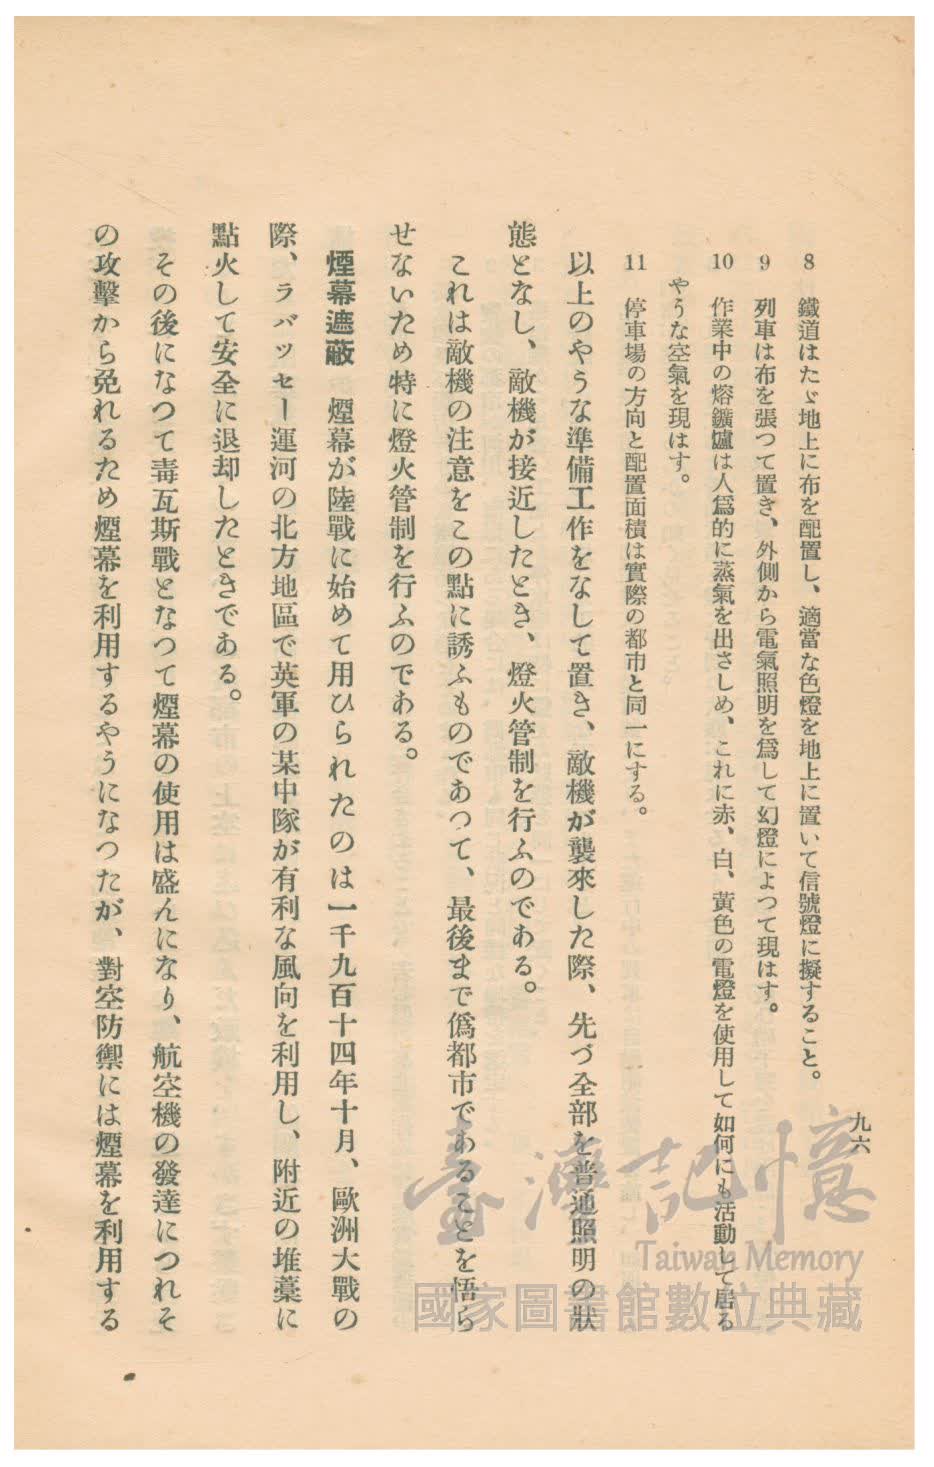 九六
8 鐵道はたゞ地上に布を配置し、適當な色燈を地上に置いて信號燈に擬すること。
9 列車は布を張つて置き、外側から電氣照明を爲して幻燈によつて現はす。
10 作業中の熔鑛爐は人爲的に蒸氣を出さしめ、これに赤、白、黃色の電燈を使用して如何にも活動して居る
やうな空氣を現はす。
11 停車場の方向と配置面積は實際の都市と同一にする。
以上のやうな準備工作をなして置き、敵機が襲來した際、先づ全部を普通照明の狀
態となし、敵機が接近したとき、燈火管制を行ふのである。
これは敵機の注意をこの點に誘ふものであつて、最後まで僞都市であることを悟ら
せないため特に燈火管制を行ふのである。
煙幕遮蔽 煙幕が陸戰に始めて用ひられたのは一千九百十四年十月、歐洲大戰の
際、ラバッセー運河の北方地區で英軍の某中隊が有利な風向を利用し、附近の堆藁に
點火して安全に退却したときである。
その後になつて毒瓦斯戰となつて煙幕の使用は盛んになり、航空機の發達につれそ
の攻擊から免れるため煙幕を利用するやうになつたが、對空防禦には煙幕を利用する
臺灣記憶
Taiwan Memory
國家圖書館數位典藏